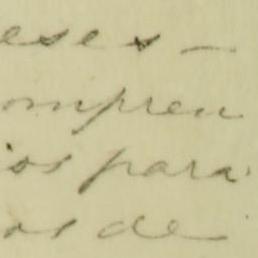 eses —
ompren
ios para
os de